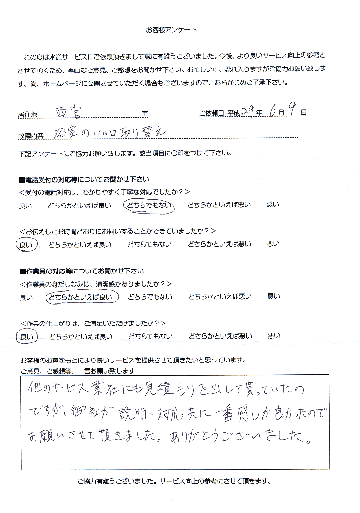 お客様アンケート
この度は水道サービス社にご依頼頂きまして誠に有難うございました。今後、より良いサービス向上の参考と
させて頂くため、率直なご意見、ご感想をお聞かせ下さい。お忙しいところ、恐れ入りますがご協力お願い致しま
す。尚、ホームページに公開させていただく場合もございますので、あらかじめご了承下さい。
ご依頼日 平成29年6月9日
下記アンケートにご協力お願い致します。該当項目に○印をつけて下さい。
■電話受付の対応等についてお聞かせ下さい
<受付の電話対応は、わかりやすく丁寧な対応でしたか？>
良い どちらかといえば良い どちらでもない どちらかといえば悪い 悪い
良い どちらかといえば良い どちらでもない どちらかといえば悪い 悪い
■作業員の対応等についてお聞かせ下さい
<作業員の身だしなみは、清潔感がありましたか？>
良い どちらかといえば良い どちらでもない どちらかといえば悪い 悪い
<作業の仕上がりは、ご満足いただけましたか？>
良い どちらかといえば良い どちらでもない どちらかといえば悪い 悪い
お客様のお声をもとにより良いサービスを提供させて頂きたいと思っています。
ご意見、ご感想等、一言お願い致します
他のサービス業社にも見積もりを出して貰っていたの
ですが、御社が説明・対応共に一番感じが良かったので
お願いさせて頂きました。ありがとうございました。
ご協力有難うございました。サービス向上の参考にさせて頂きます。